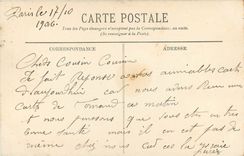 Paris le 17/10
1906.
CARTE POSTALE
Tous les Pays étrangers n'acceptent pas la Correspondance, au recto.
(Se renseigner à la Poste).
CORRESPONDANCE
ADRESSE
Chers Cousin Cousine
Je fait réponse à votre aimiables carte
d'aujourd'hui car nous avons Reçu une
carte de Fernand ce matin
et nous pensons que vous êtes en très
bonne santé mais il en est pas de
même chez nous car c'est la vraie